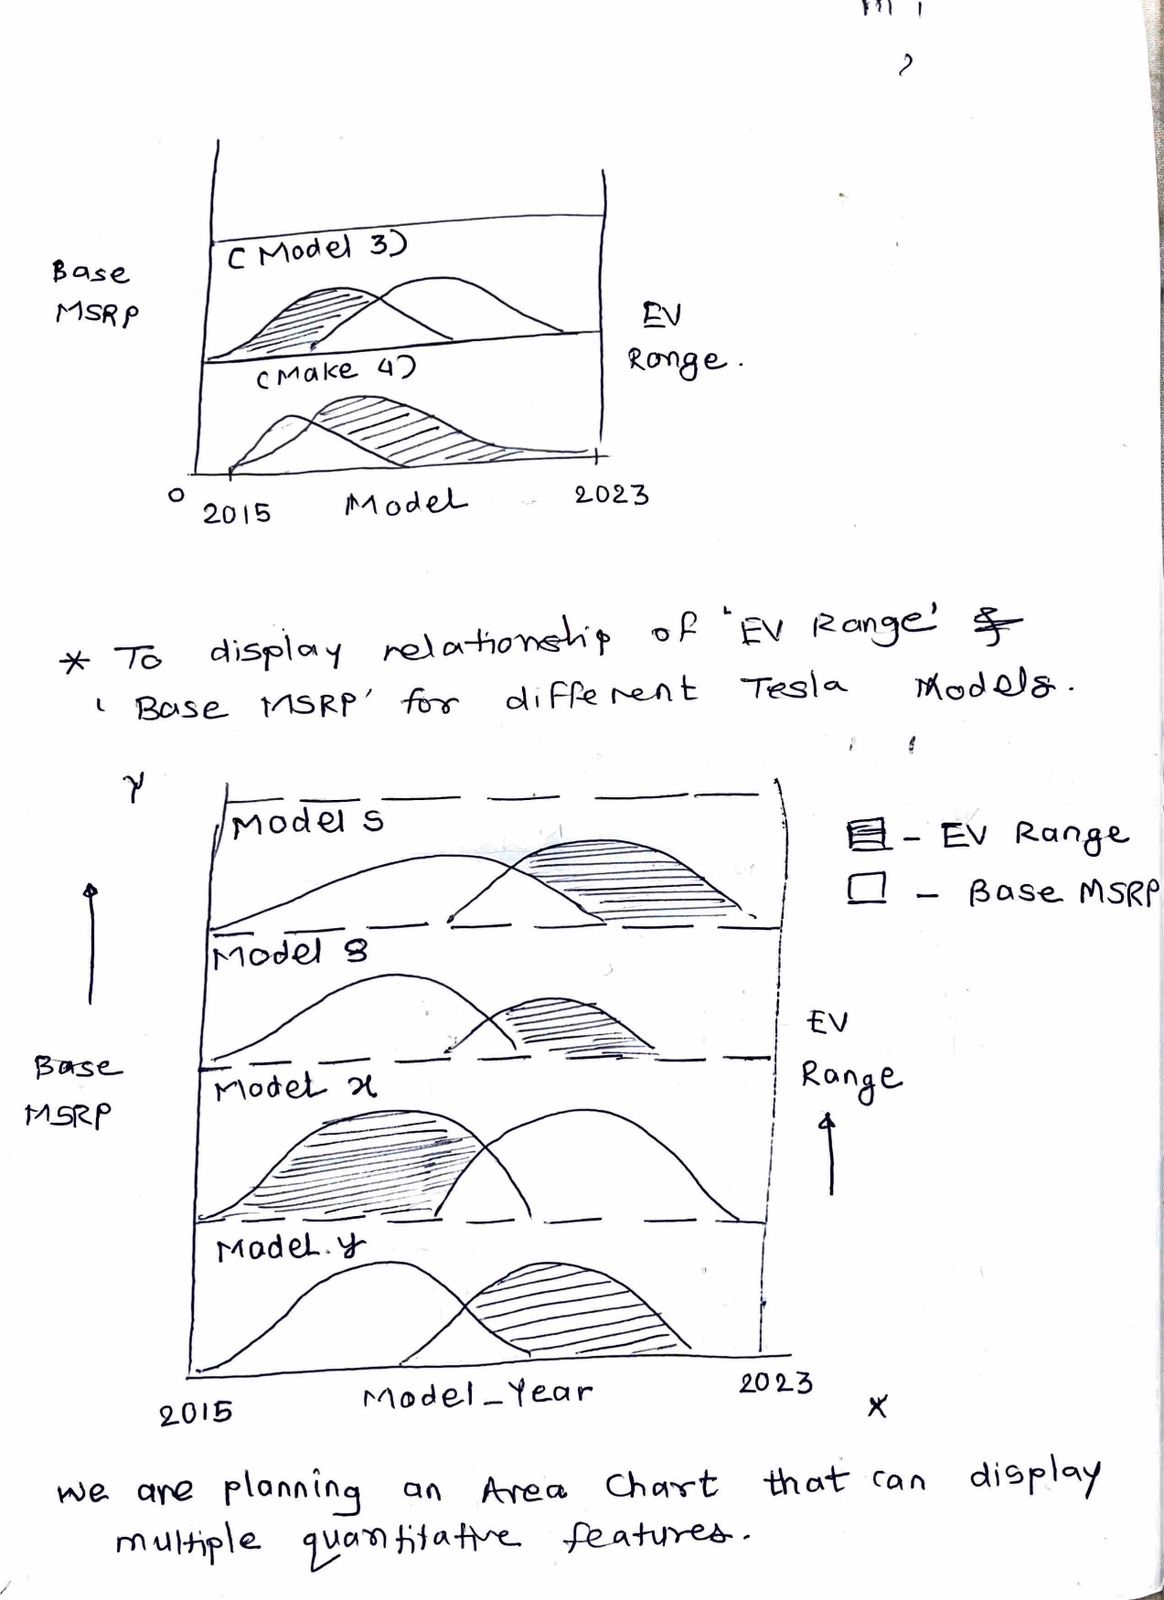 (Model 3)
Base
MSRP
EV
Range.
(Make 4)
0
2015
Model
2023
* To display relationship of 'EV Range' &
'Base MSRP' for different Tesla Models.
Y
Model S
- EV Range
- Base MSRP
Model 3
EV
Range
Base
MSRP
Model x
Model y
2015
Model_Year
2023
X
we are planning an Area Chart that can display
multiple quantitative features.